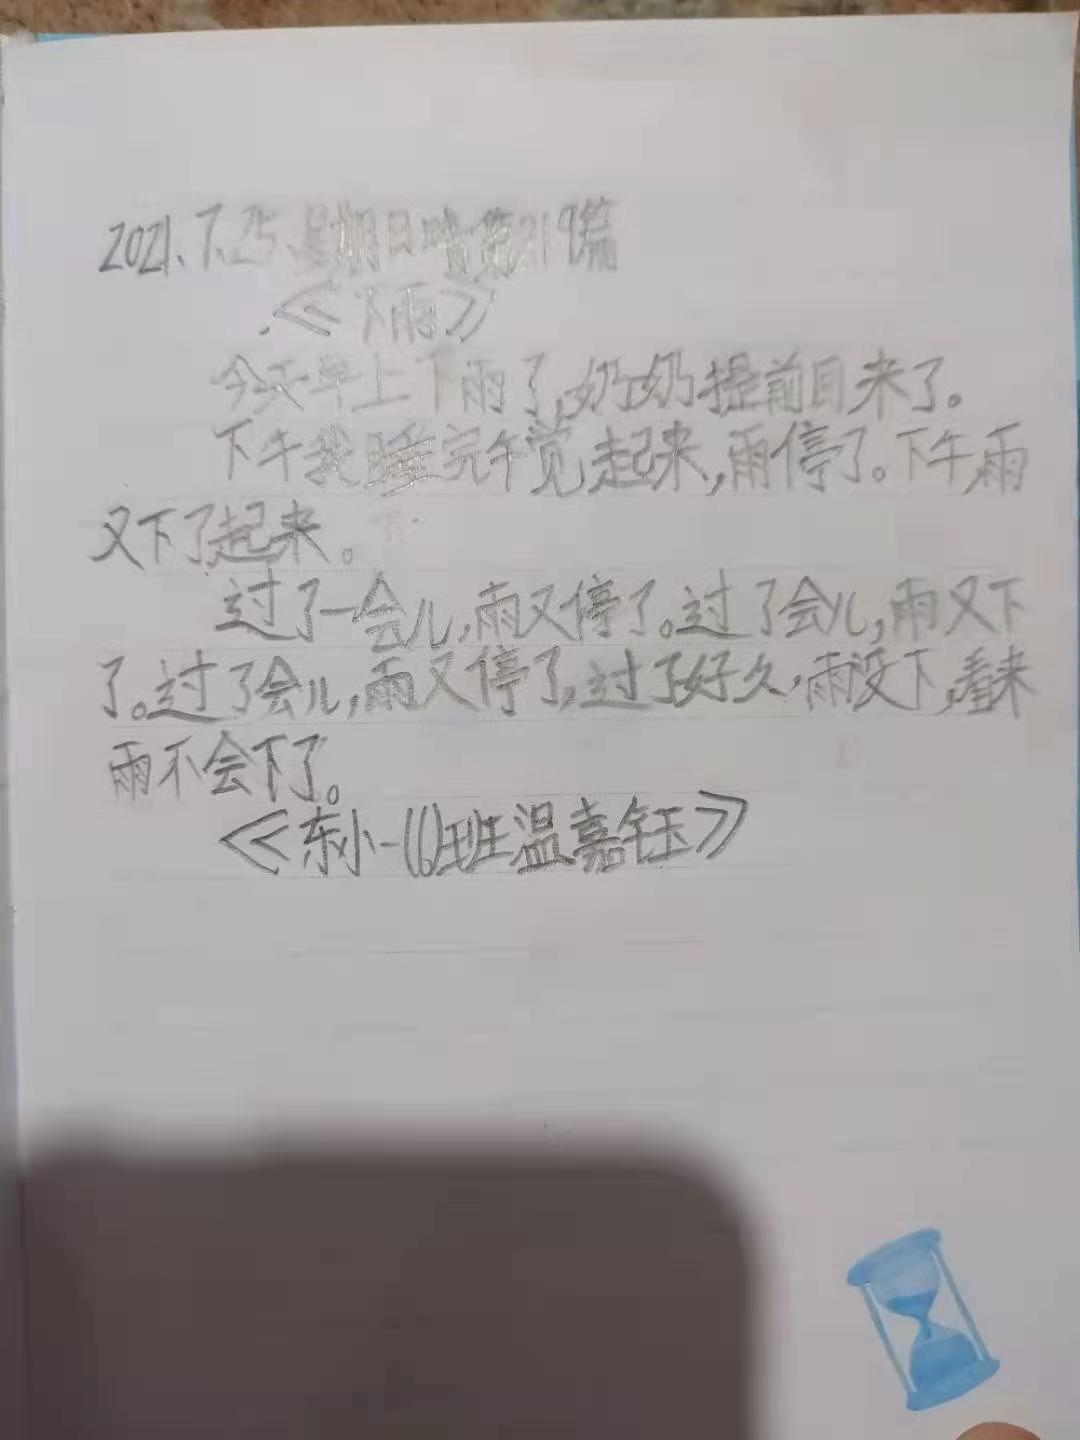 2021.7.25 星期日晴第219篇
《下雨》
今天早上下雨了,奶奶提前回来了。
下午我睡完午觉起来,雨停了。下午,雨
又下了起来。
过了一会儿,雨又停了。过了会儿,雨又下
了。过了会儿,雨又停了,过了好久,雨没下,看来
雨不会下了。
《东小一(6)班温嘉钰》